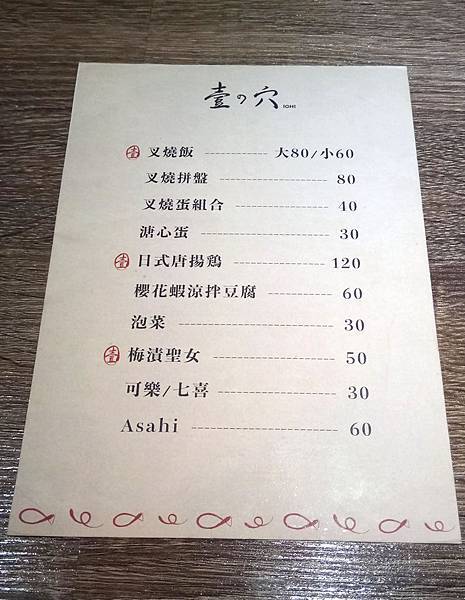 壹の穴 ICHI
壹 叉燒飯 ------------ 大80/小60
叉燒拼盤 -------------------- 80
叉燒蛋組合 ------------------ 40
溏心蛋 ---------------------- 30
壹 日式唐揚鶏 ---------------- 120
櫻花蝦涼拌豆腐 ------------ 60
泡菜 -------------------------- 30
壹 梅漬聖女 ---------------------- 50
可樂/七喜 ---------------------- 30
Asahi -------------------------- 60